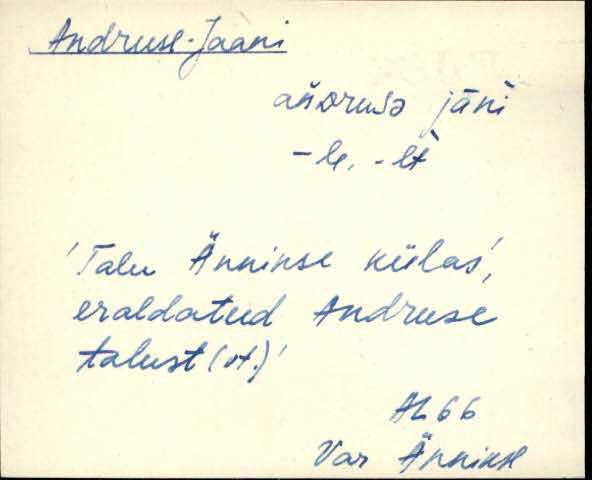 Andruse-Jaani
ańdrusᴈ jāńi
-le, -lt
'Talu Änninse külas',
eraldatud Andruse
talust (vt.)'
AL 66
Var Änninse